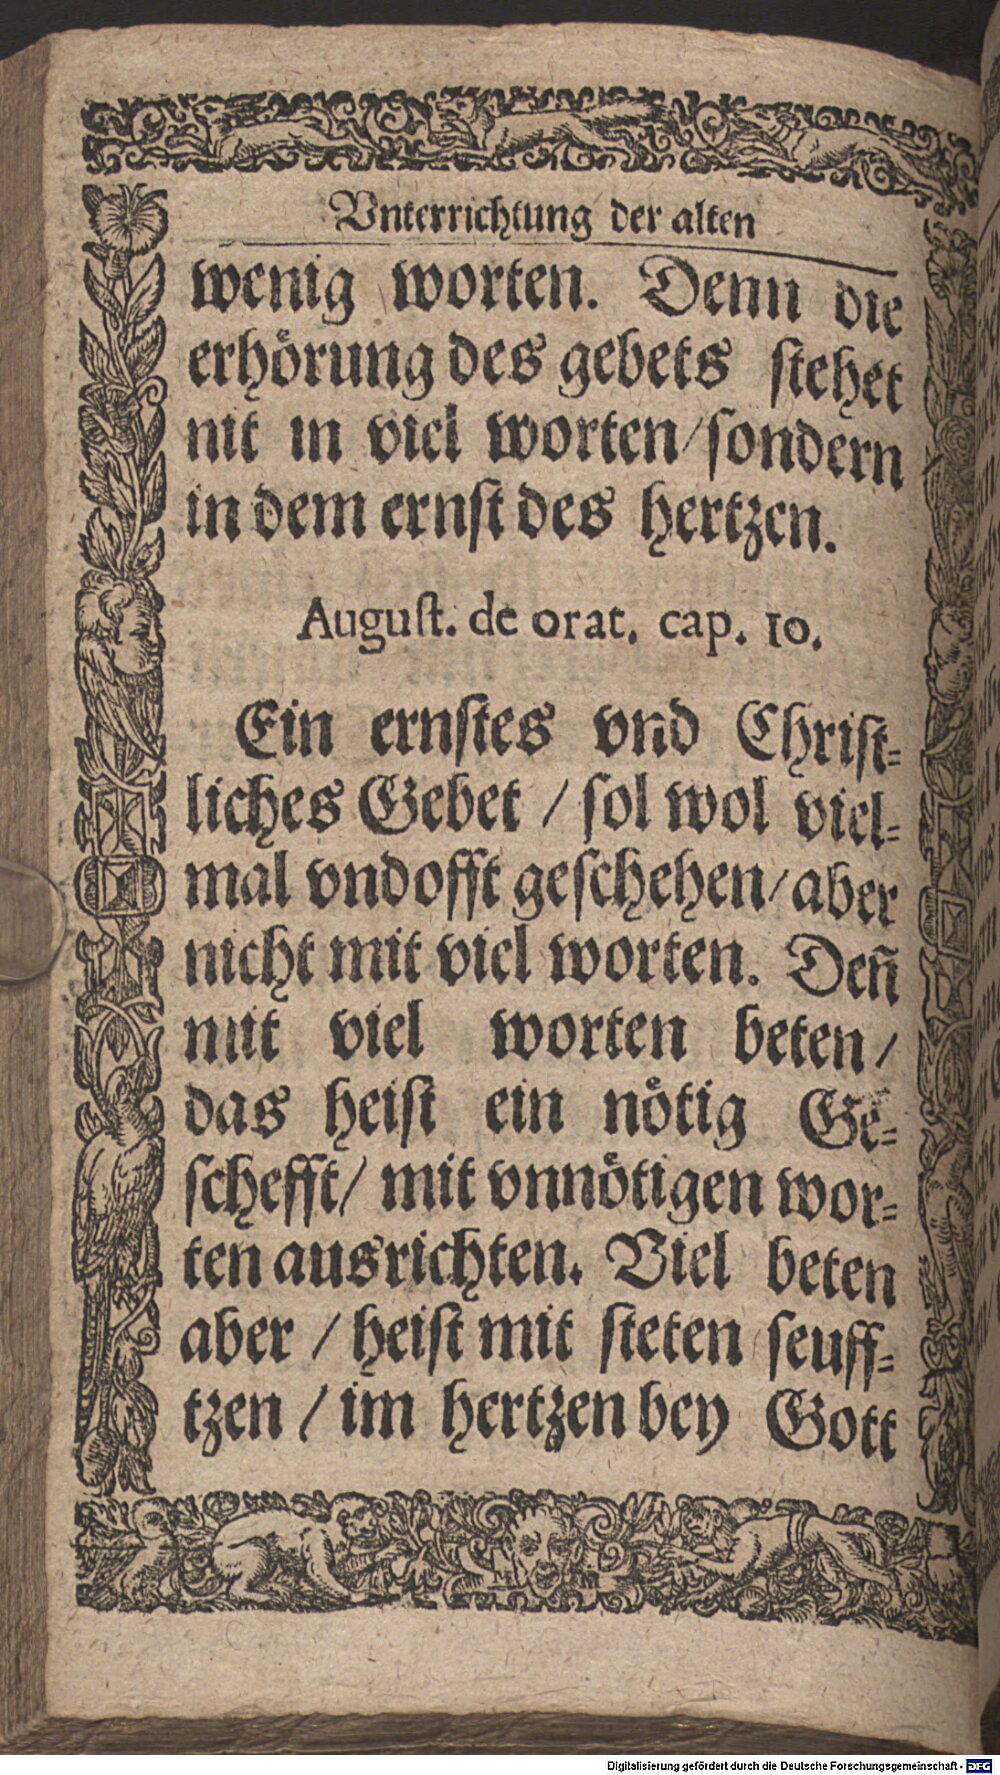 Vnterrichtung der alten
wenig worten. Denn die
erhörung des gebets stehet
nit in viel worten/sondern
in dem ernst des hertzen.
August. de orat. cap. 10.
Ein ernstes vnd Christ-
liches Gebet / sol wol viel-
mal vnd offt geschehen/aber
nicht mit viel worten. Deñ
mit viel worten beten/
das heist ein nötig Ge-
schefft/ mit vnnötigen wor-
ten ausrichten. Viel beten
aber / heist mit steten seuff-
tzen / im hertzen bey Gott
Digitalisierung gefördert durch die Deutsche Forschungsgemeinschaft - DFG